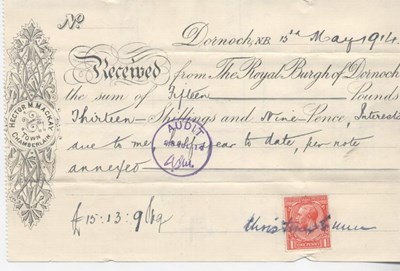 No.
Dornoch, N.B. 15th May 1914.
Received from The Royal Burgh of Dornoch
the sum of Fifteen Pounds
Thirteen Shillings and Nine Pence, Interest
due to me for year to date, per note
annexed
HECTOR M. MACKAY
TOWN
CHAMBERLAIN.
AUDIT
£15:13:9
ONE PENNY